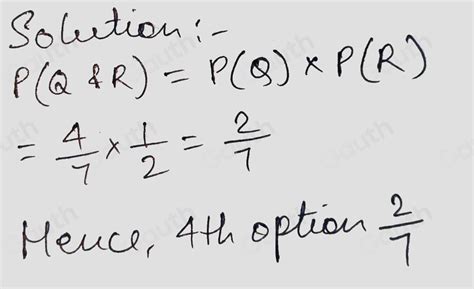 Solution :-
P(Q & R) = P(Q) × P(R)
= 4/7 × 1/2 = 2/7
Hence, 4th option 2/7